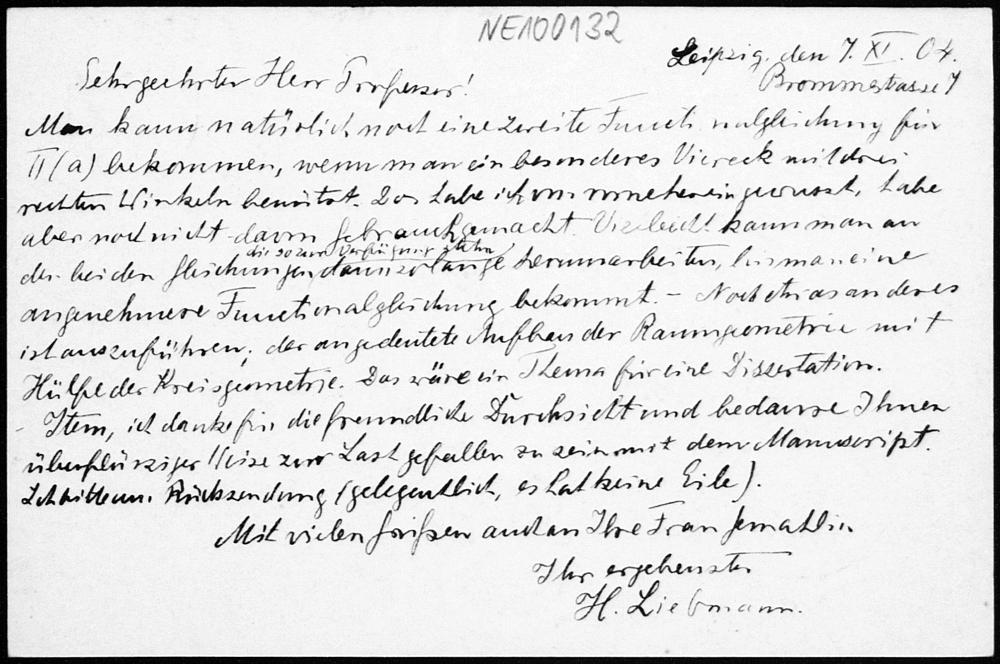 NE100132
Leipzig, den 7. XI. 04.
Brommestrasse 7
Sehrgeehrter Herr Professor!
Man kann natürlich noch eine zweite Functionalgleichung für
Π(a) bekommen, wenn man ein besonderes Viereck mit drei
rechten Winkeln benützt. Das habe ich von vorneherein gewusst, habe
aber noch nicht davon Gebrauch gemacht. Vielleicht kann man an
die so zur Verfügung stehn,
den beiden Gleichungen, dann so lange herumarbeiten, bis man eine
angenehmere Functionalgleichung bekommt. – Noch etwas anderes
ist auszuführen; der angedeutete Aufbau der Raumgeometrie mit
Hülfe der Kreisgeometrie. Das wäre ein Thema für eine Dissertation.
Item, ich danke für die freundliche Durchsicht und bedaure Ihnen
überflüssiger Weise zur Last gefallen zu sein mit dem Manuscript.
Ich bitte um Rücksendung (gelegentlich, es hat keine Eile).
Mit vielen Grüßen auch an Ihre Frau Gemahlin
Ihr ergebenster
H. Liebmann.